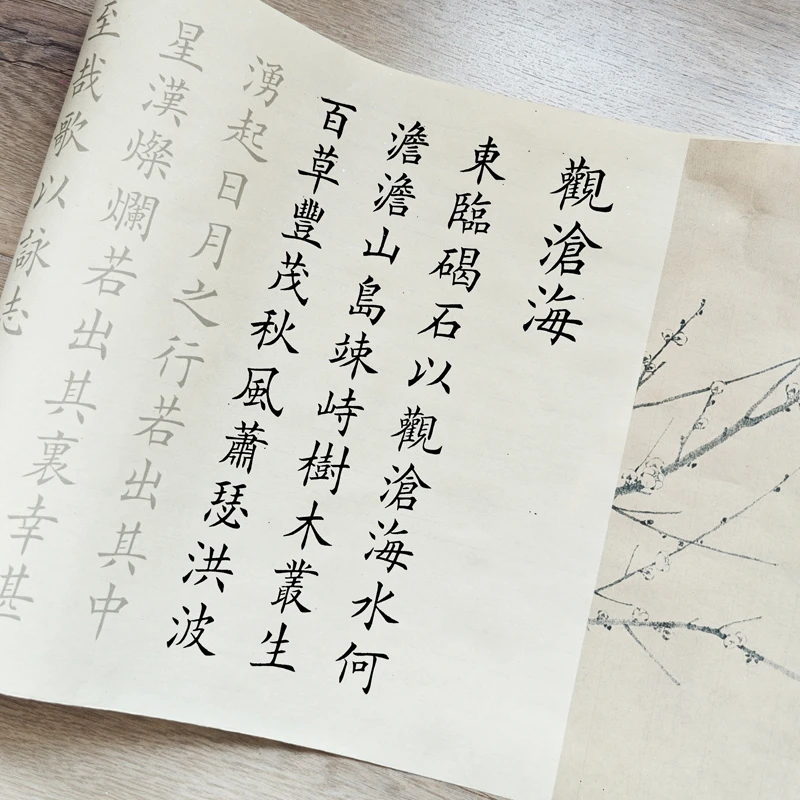 觀滄海
東臨碣石以觀滄海水何
澹澹山島竦峙樹木叢生
百草豐茂秋風蕭瑟洪波
湧起日月之行若出其中
星漢燦爛若出其裏幸甚
至哉歌以詠志